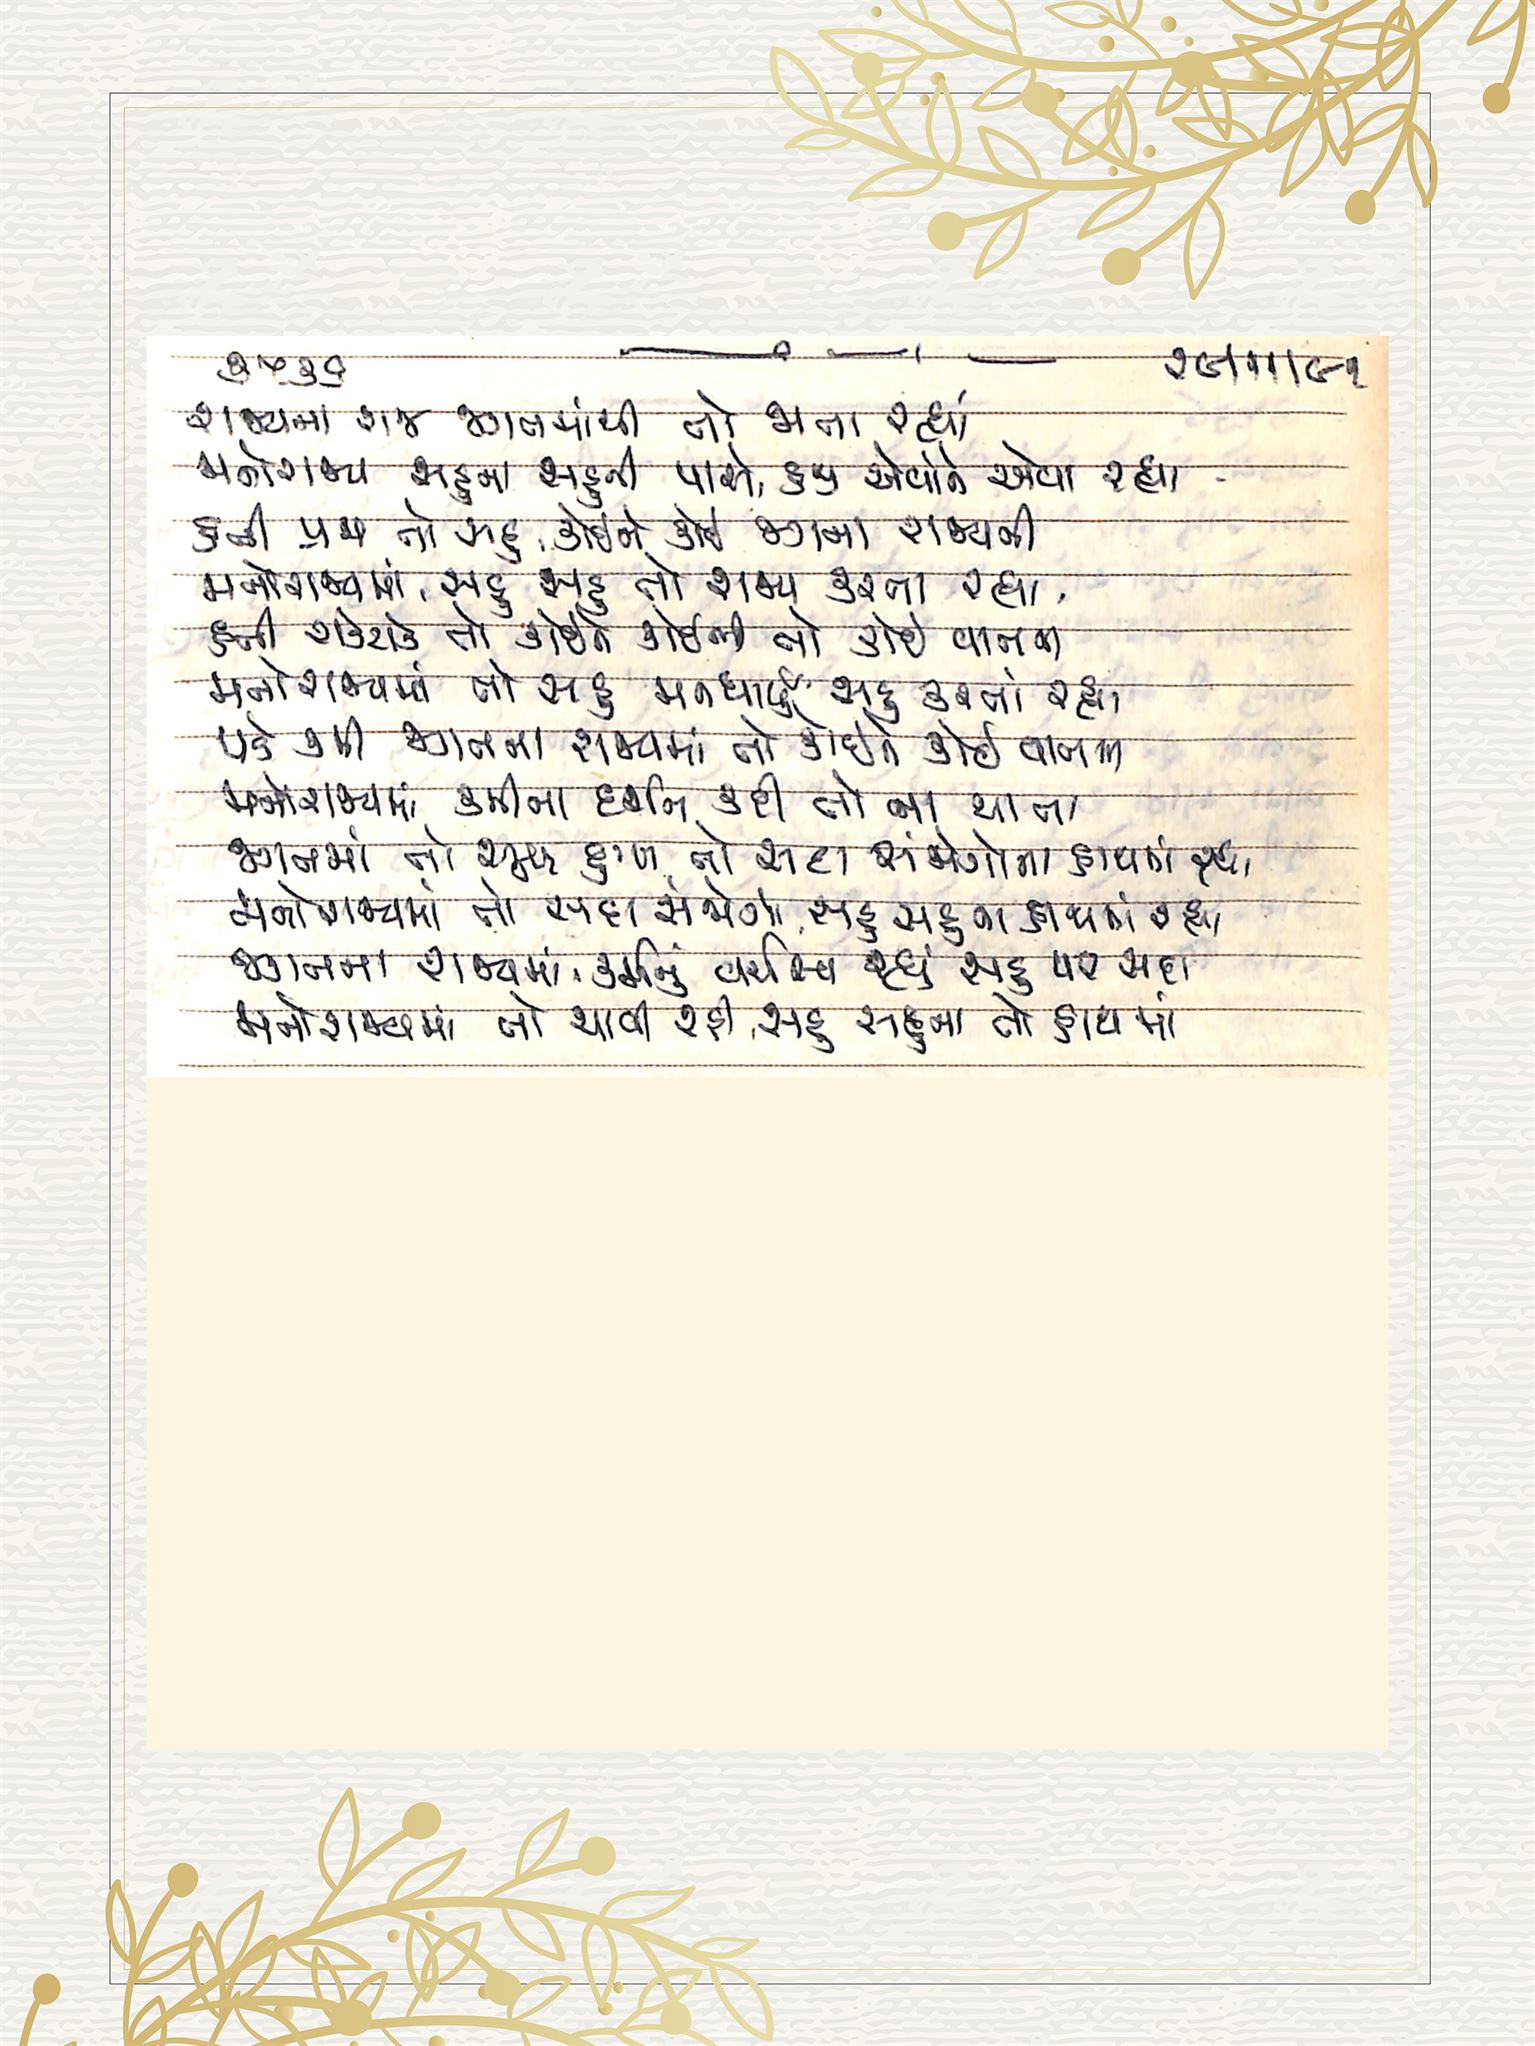 ૨૯/૧૧/૯૧
રાજ્યના રાજ જગતમાંથી તો જાતા રહ્યાં
મનોરાજ્ય સહુના સહુની પાસે, હજુ એવાંને એવા રહ્યા
હતી પ્રજા તો સહુ, કોઈને કોઈ જગના રાજ્યની
મનોરાજ્યમાં, સહુ સહુ તો રાજ્ય કરતા રહ્યા,
હતી રોકટોક તો કોઈને કોઈની તો કોઈ વાતમાં
મનોરાજ્યમાં તો સહુ મનધાર્યું સહુ કરતાં રહ્યા
પડે કમી જગતના રાજ્યમાં તો કોઈને કોઈ વાતમાં
મનોરાજ્યમાં, કમીના દર્શન કદી તો ના થાતા
જગતમાં તો સુખ દુઃખ તો સદા સંજોગોના હાથમાં રહ્યા
મનોરાજ્યમાં તો સદા સંજોગો, સહુ સહુના હાથમાં રહ્યા
જગતના રાજ્યમાં, કર્મનું વર્ચસ્વ રહ્યું સહુ પર સદા
મનોરાજ્યમાં તો ચાવી રહી, સહુ સહુના તો હાથમાં